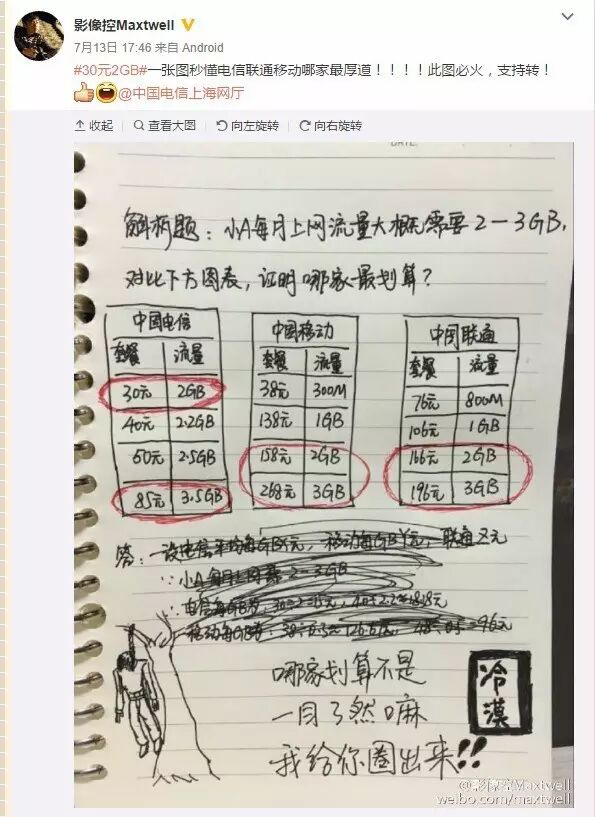 影像控Maxtwell
7月13日 17:46 来自 Android
#30元2GB#一张图秒懂电信联通移动哪家最厚道！！！！此图必火，支持转！
@中国电信上海网厅
收起 查看大图 向左旋转 向右旋转
DATE:
解析题：小A每月上网流量大概需要2—3GB，
对比下方图表，证明哪家最划算？
中国电信
套餐 流量
30元 2GB
40元 2.2GB
60元 2.5GB
85元 3.5GB
中国移动
套餐 流量
38元 300M
138元 1GB
158元 2GB
268元 3GB
中国联通
套餐 流量
76元 800M
106元 1GB
166元 2GB
196元 3GB
答：一设电信平均每GBX元，移动每GBY元，联通Z元
∵小A每月上网需2—3GB
哪家划算不是
一目了然嘛
我给你圈出来!!
冷漠
@影像控Maxtwell
weibo.com/maxtwell